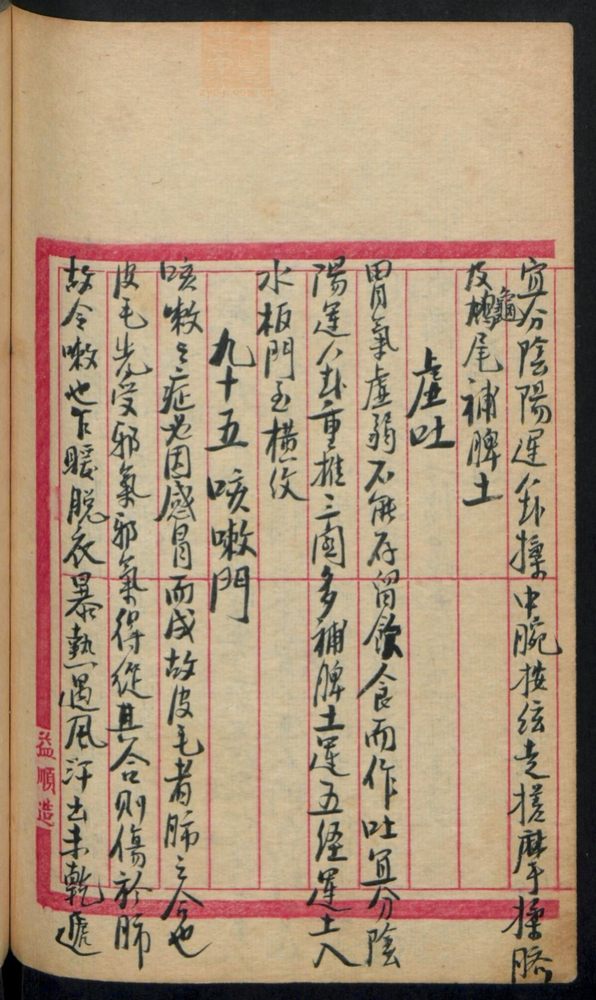 宜分陰陽運八卦揉中脘按弦走搓摩揉臍
及龜尾補脾土
虛吐
胃氣虛弱不能存留飲食而作吐宜分陰
陽運八卦重推三関多補脾土運五經運土入
水板門至橫紋
九十五咳嗽門
咳嗽之症必因感冒而成故皮毛者肺之合也
皮毛先受邪氣邪氣得從其合則傷於肺
故令嗽也乍暖脫衣暴熱遇風汗出未乾遽
益順造